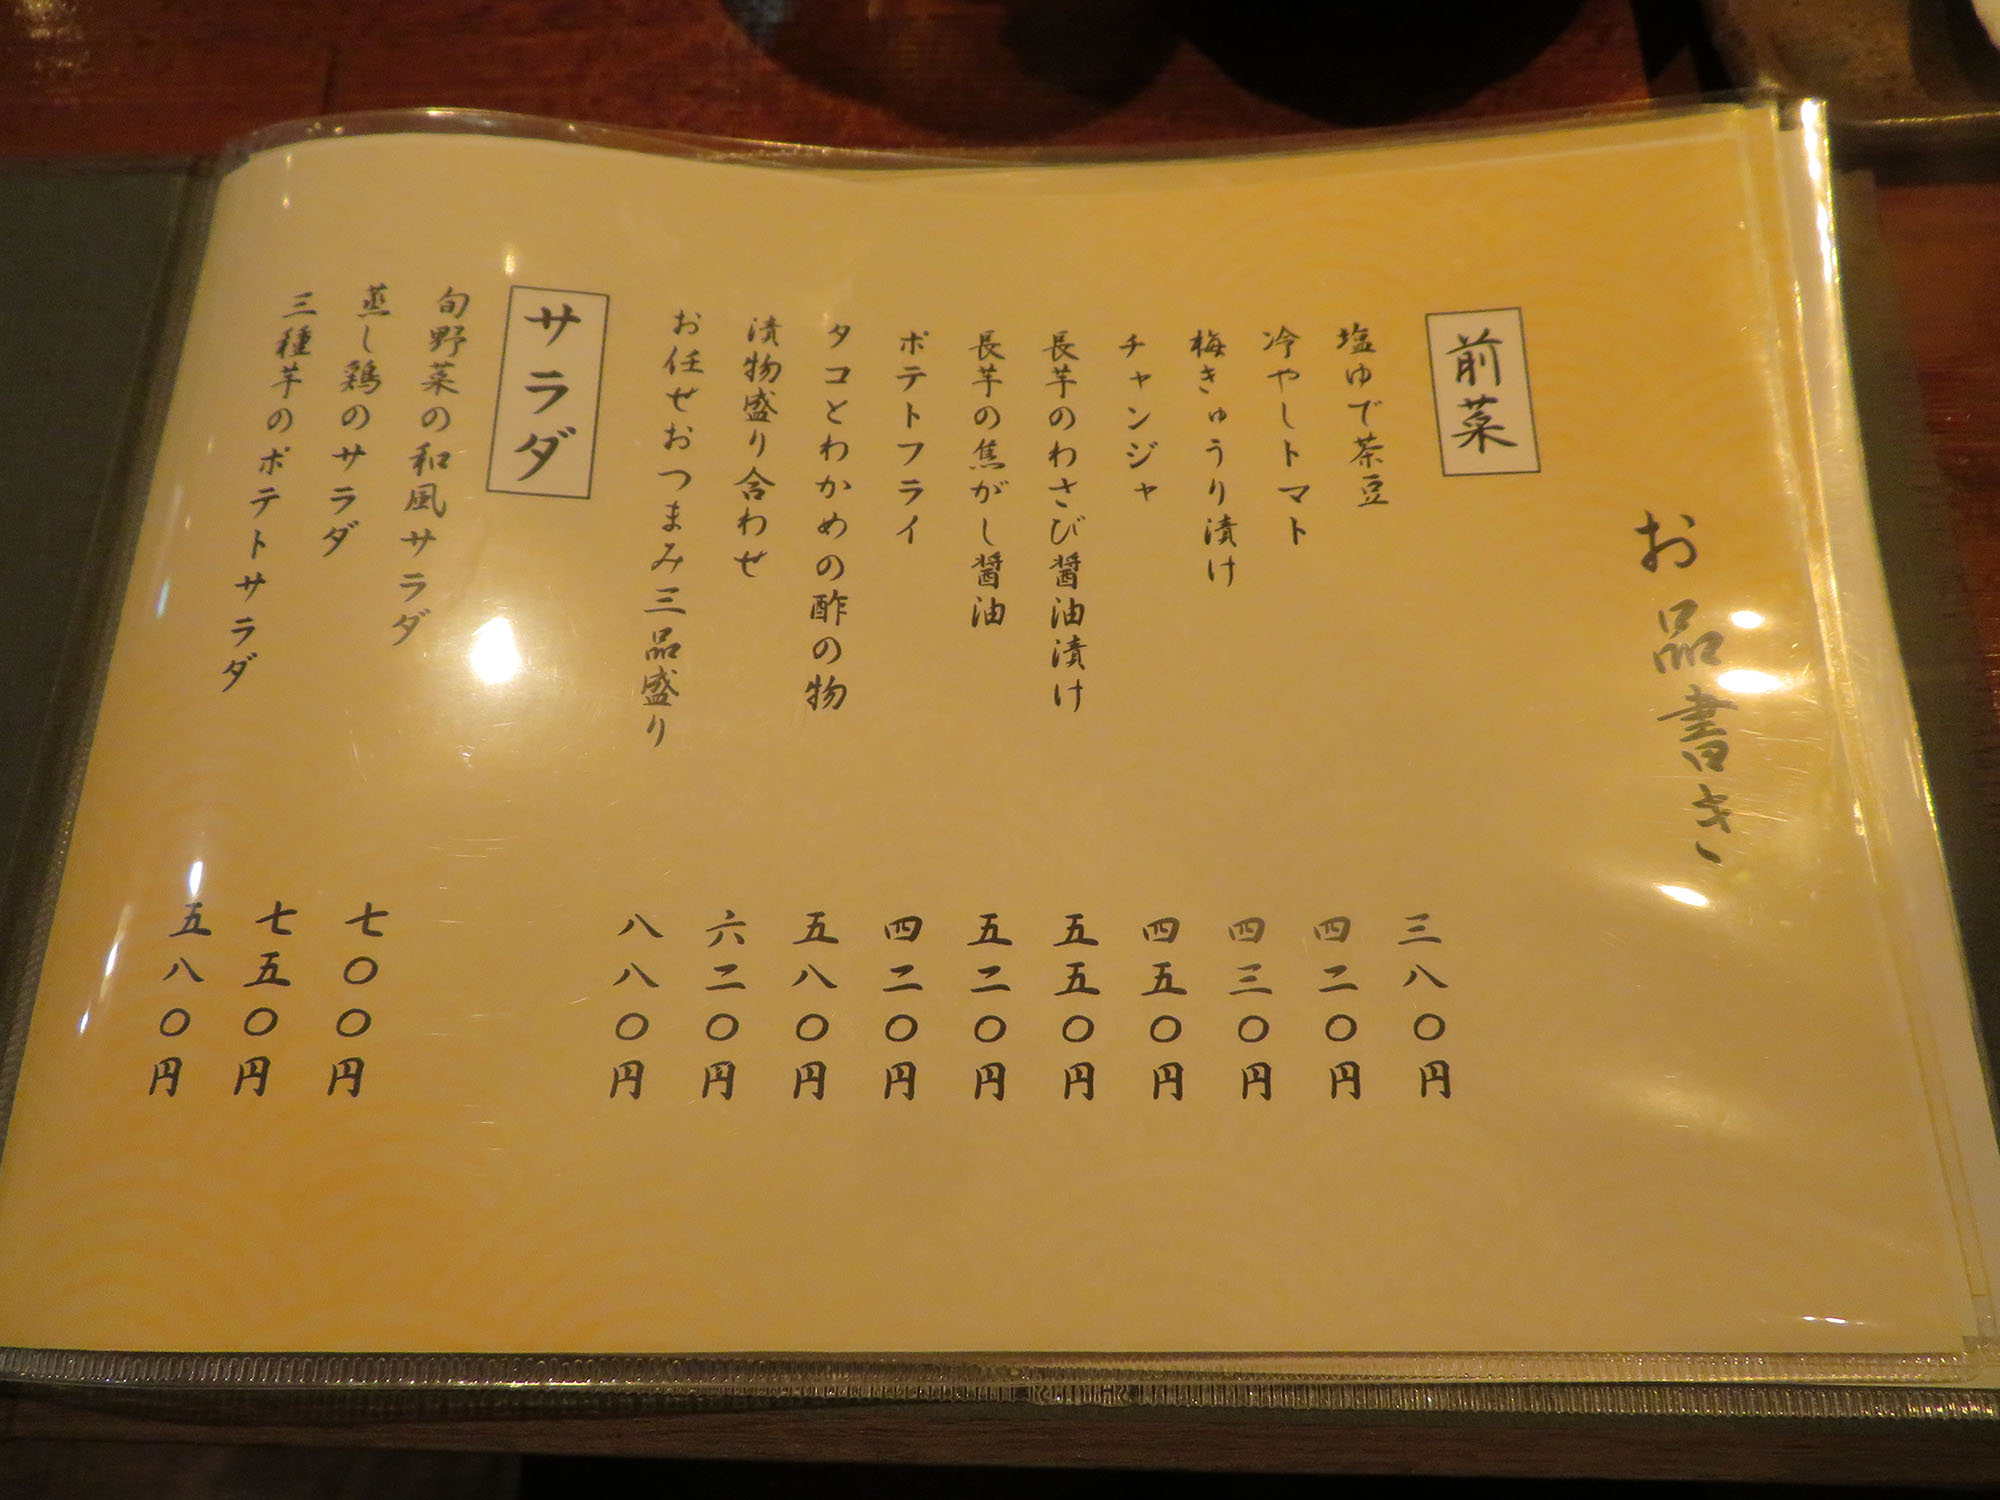 お品書き
前菜
塩ゆで茶豆 三八〇円
冷やしトマト 四二〇円
梅きゅうり漬け 四三〇円
チャンジャ 四五〇円
長芋のわさび醤油漬け 五五〇円
長芋の焦がし醤油 五二〇円
ポテトフライ 四二〇円
タコとわかめの酢の物 五八〇円
漬物盛り合わせ 六二〇円
お任せおつまみ三品盛り 八八〇円
サラダ
旬野菜の和風サラダ 七〇〇円
蒸し鶏のサラダ 七五〇円
三種芋のポテトサラダ 五八〇円